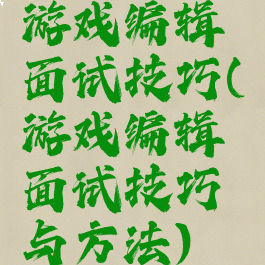 游戏编辑
面试技巧(
游戏编辑
面试技巧
与方法)